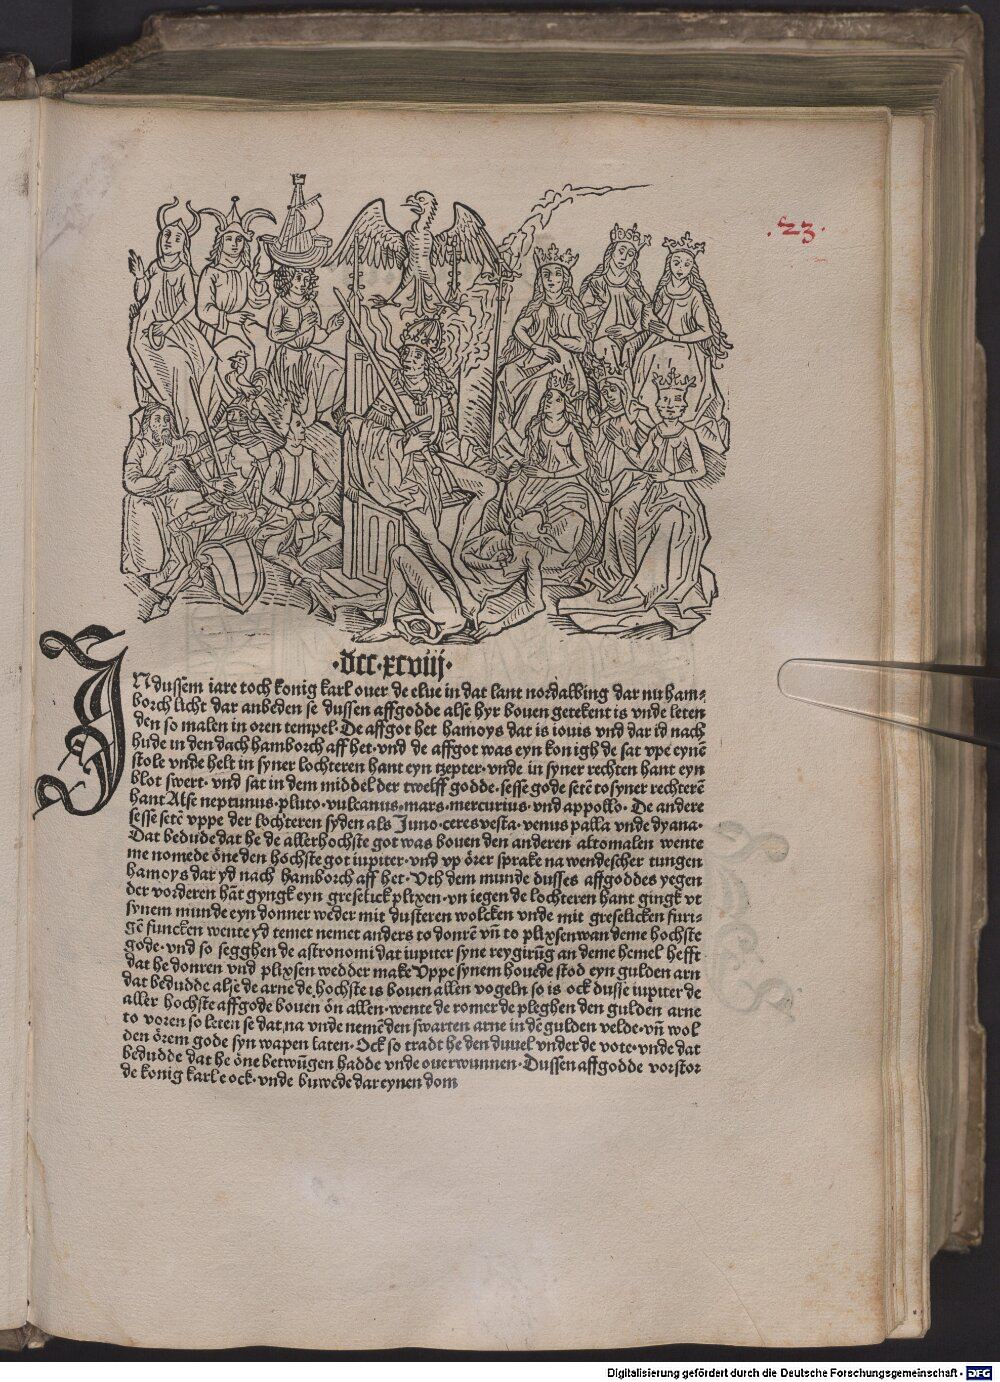 .23.
·dcc·xcviij·
INdussem iare toch konig karl ouer de elue in dat lant nordalbing dar nu ham-
borch licht dar anbeden se dussen affgodde alse hyr bouen getekent is vnde leten
den so malen in oren tempel· De affgot het hamoys dat is iouis vnd dar id nach
hude in den dach hamborch aff het· vnd de affgot was eyn konigh de sat vpe eynē
stole vnde helt in syner lochteren hant eyn tzepter· vnde in syner rechten hant eyn
blot swert· vnd sat in dem middel der twelff godde· sesse gode setē to syner rechterē
hant Alse neptunus· pluto· vulcanus· mars· mercurius· vnd appollo· De andere
sesse setē vppe der lochteren syden als Juno· ceres vesta· venus palla vnde dyana·
Dat bedude dat he de allerhochste got was bouen den anderen altomalen wente
me nomede öne den höchste got iupiter· vnd vp örer sprake na wendescher tungen
hamoys dar yd nach hamborch aff het· Vth dem munde dusses affgoddes yegen
der vorderen hāt gyngk eyn greselick plixen· vn iegen de lochteren hant gingk vt
synem munde eyn donner weder mit dusteren wolcken vnde mit greselicken furi-
gē funcken wente yd temet nemet anders to donrē vn̄ to plixsen wan deme hochste
gode· vnd so segghen de astronomi dat iupiter syne reygirūg an deme hemel hefft
dat he donren vnd plixsen wedder make Vppe synem houede stod eyn gulden arn
dat bedudde alse de arne de hochste is bouen allen vogeln so is ock dusse iupiter de
aller hochste affgode bouen ön allen· wente de romer de pleghen den gulden arne
to voren so leten se dat na vnde nemē den swarten arne in dē gulden velde· vn̄ wol
den örem gode syn wapen laten· Ock so tradt he den duuel vnder de vote· vnde dat
bedudde dat he öne betwūgen hadde vnde ouerwunnen· Dussen affgodde vorstor
de konig karle ock· vnde buwede dar eynen dom
Digitalisierung gefördert durch die Deutsche Forschungsgemeinschaft - DFG